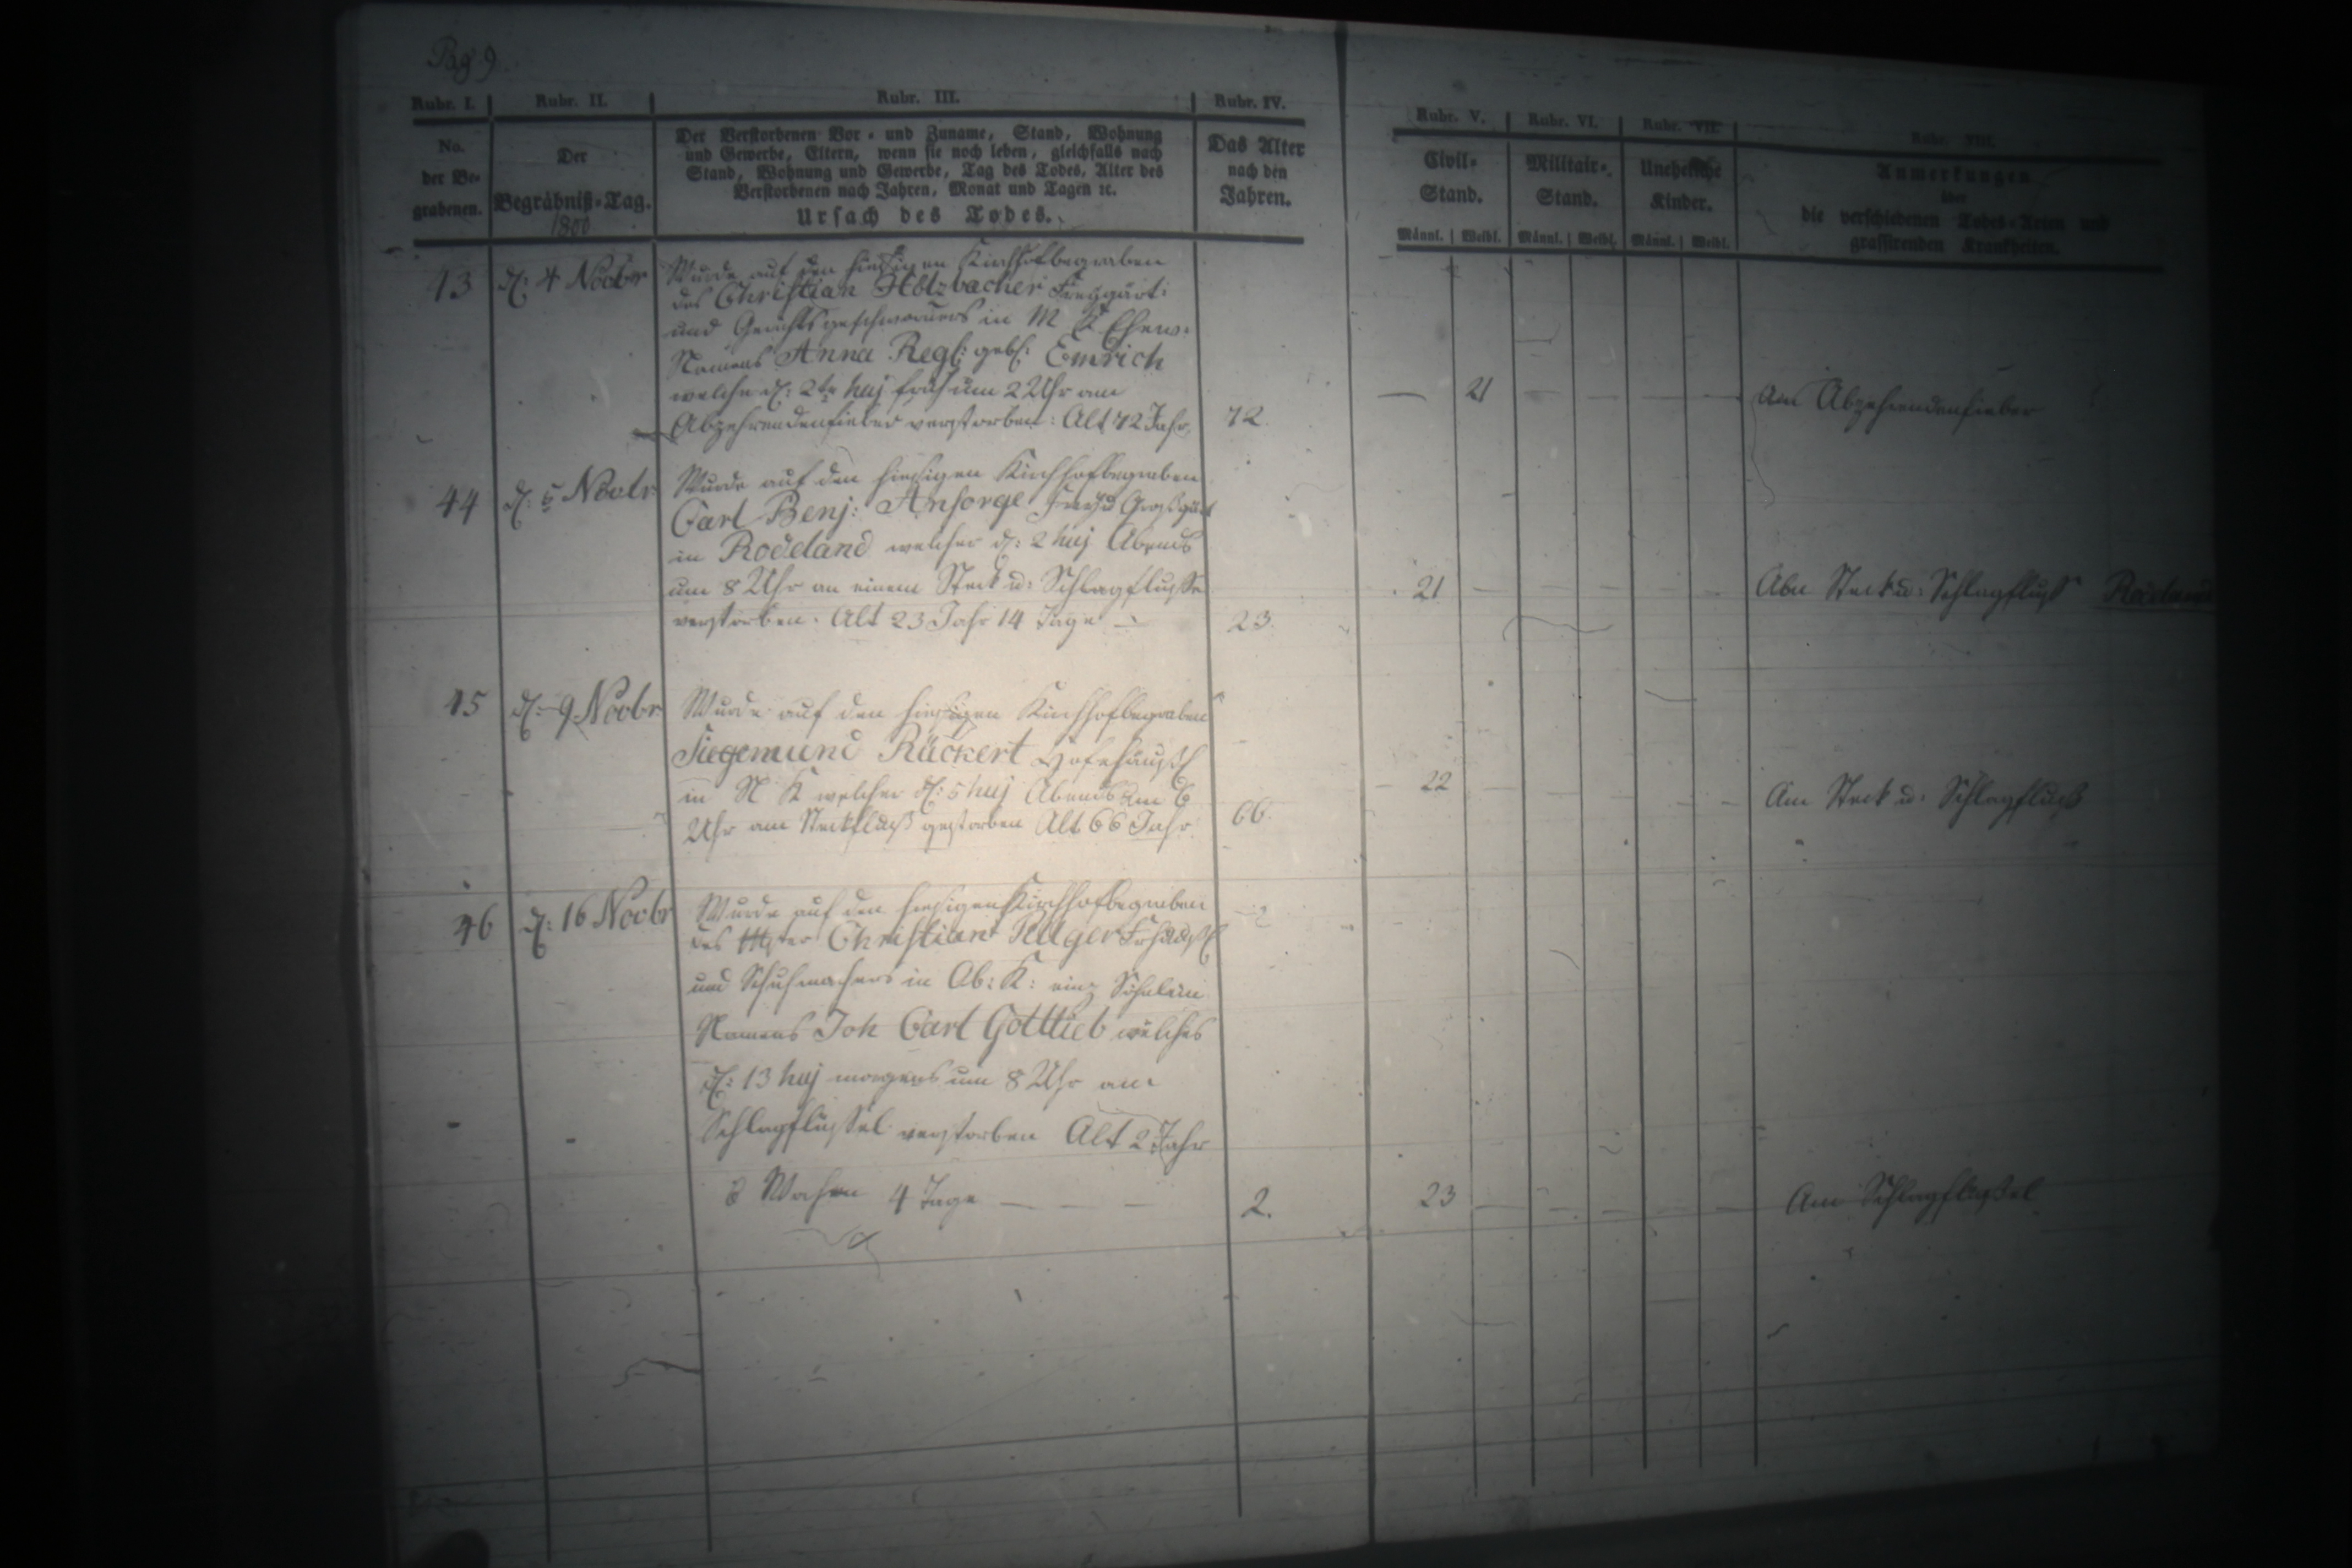 Pag 9
Rubr. I. Rubr. II. Rubr. III. Rubr. IV. Rubr. V. Rubr. VI. Rubr. VII. Rubr. VIII.
No. der Be- grabenen.
Der Begräbniß-Tag.
1800
Der Verstorbenen Vor- und Zuname, Stand, Wohnung
und Gewerbe, Eltern, wenn sie noch leben, gleichfalls nach
Stand, Wohnung und Gewerbe, Tag des Todes, Alter des
Verstorbenen nach Jahren, Monat und Tagen ꝛc.
Ursach des Todes.
Das Alter
nach den
Jahren.
Civil-
Stand.
Militair-
Stand.
Uneheliche
Kinder.
Anmerkungen
über
die verschiedenen Todes-Arten und
grassirenden Krankheiten.
Männl. Weibl. Männl. Weibl. Männl. Weibl.
43 d: 4 Novbr
Wurde auf den hiesigen Kirchhof begraben
des Christian Holzbacher Freygärt:
und Gerichtsgeschworners in M K Ehew.
Namens Anna Regl: gebh: Emrich
welche d: 2te huj früh um 2 Uhr am
Abzehrendenfieber verstorben: Alt 72 Jahr
72. 21 Am Abzehrendenfieber
44 d: 5 Novbr
Wurde auf den hiesigen Kirchhof begraben
Carl Benj: Ansorge
in Rodeland welcher d: 2 huj Abends
um 8 Uhr an einem Steck u: Schlagflusse
verstorben. Alt 23 Jahr 14 Tage
23. 21 Steck u: Schlagfluß Rodeland
45 d: 9 Novbr
Wurde auf den hiesigen Kirchhof begraben
Siegemund Rückert Hofehäußl
in N K welcher d: 5 huj Abends um 6
Uhr am Steckfluß gestorben Alt 66 Jahr
66. 22 Am Steck u: Schlagfluß
46 d: 16 Novbr
Wurde auf den hiesigen Kirchhof begraben
des Mster Christian
und Schuhmachers in Ob: K: einz Söhnlein
Namens Joh Carl Gottlieb welches
d: 13 huj morgens um 8 Uhr am
Schlagflussel verstorben Alt 2 Jahr
Wochen 4 Tage
2. 23 Am Schlagflußel